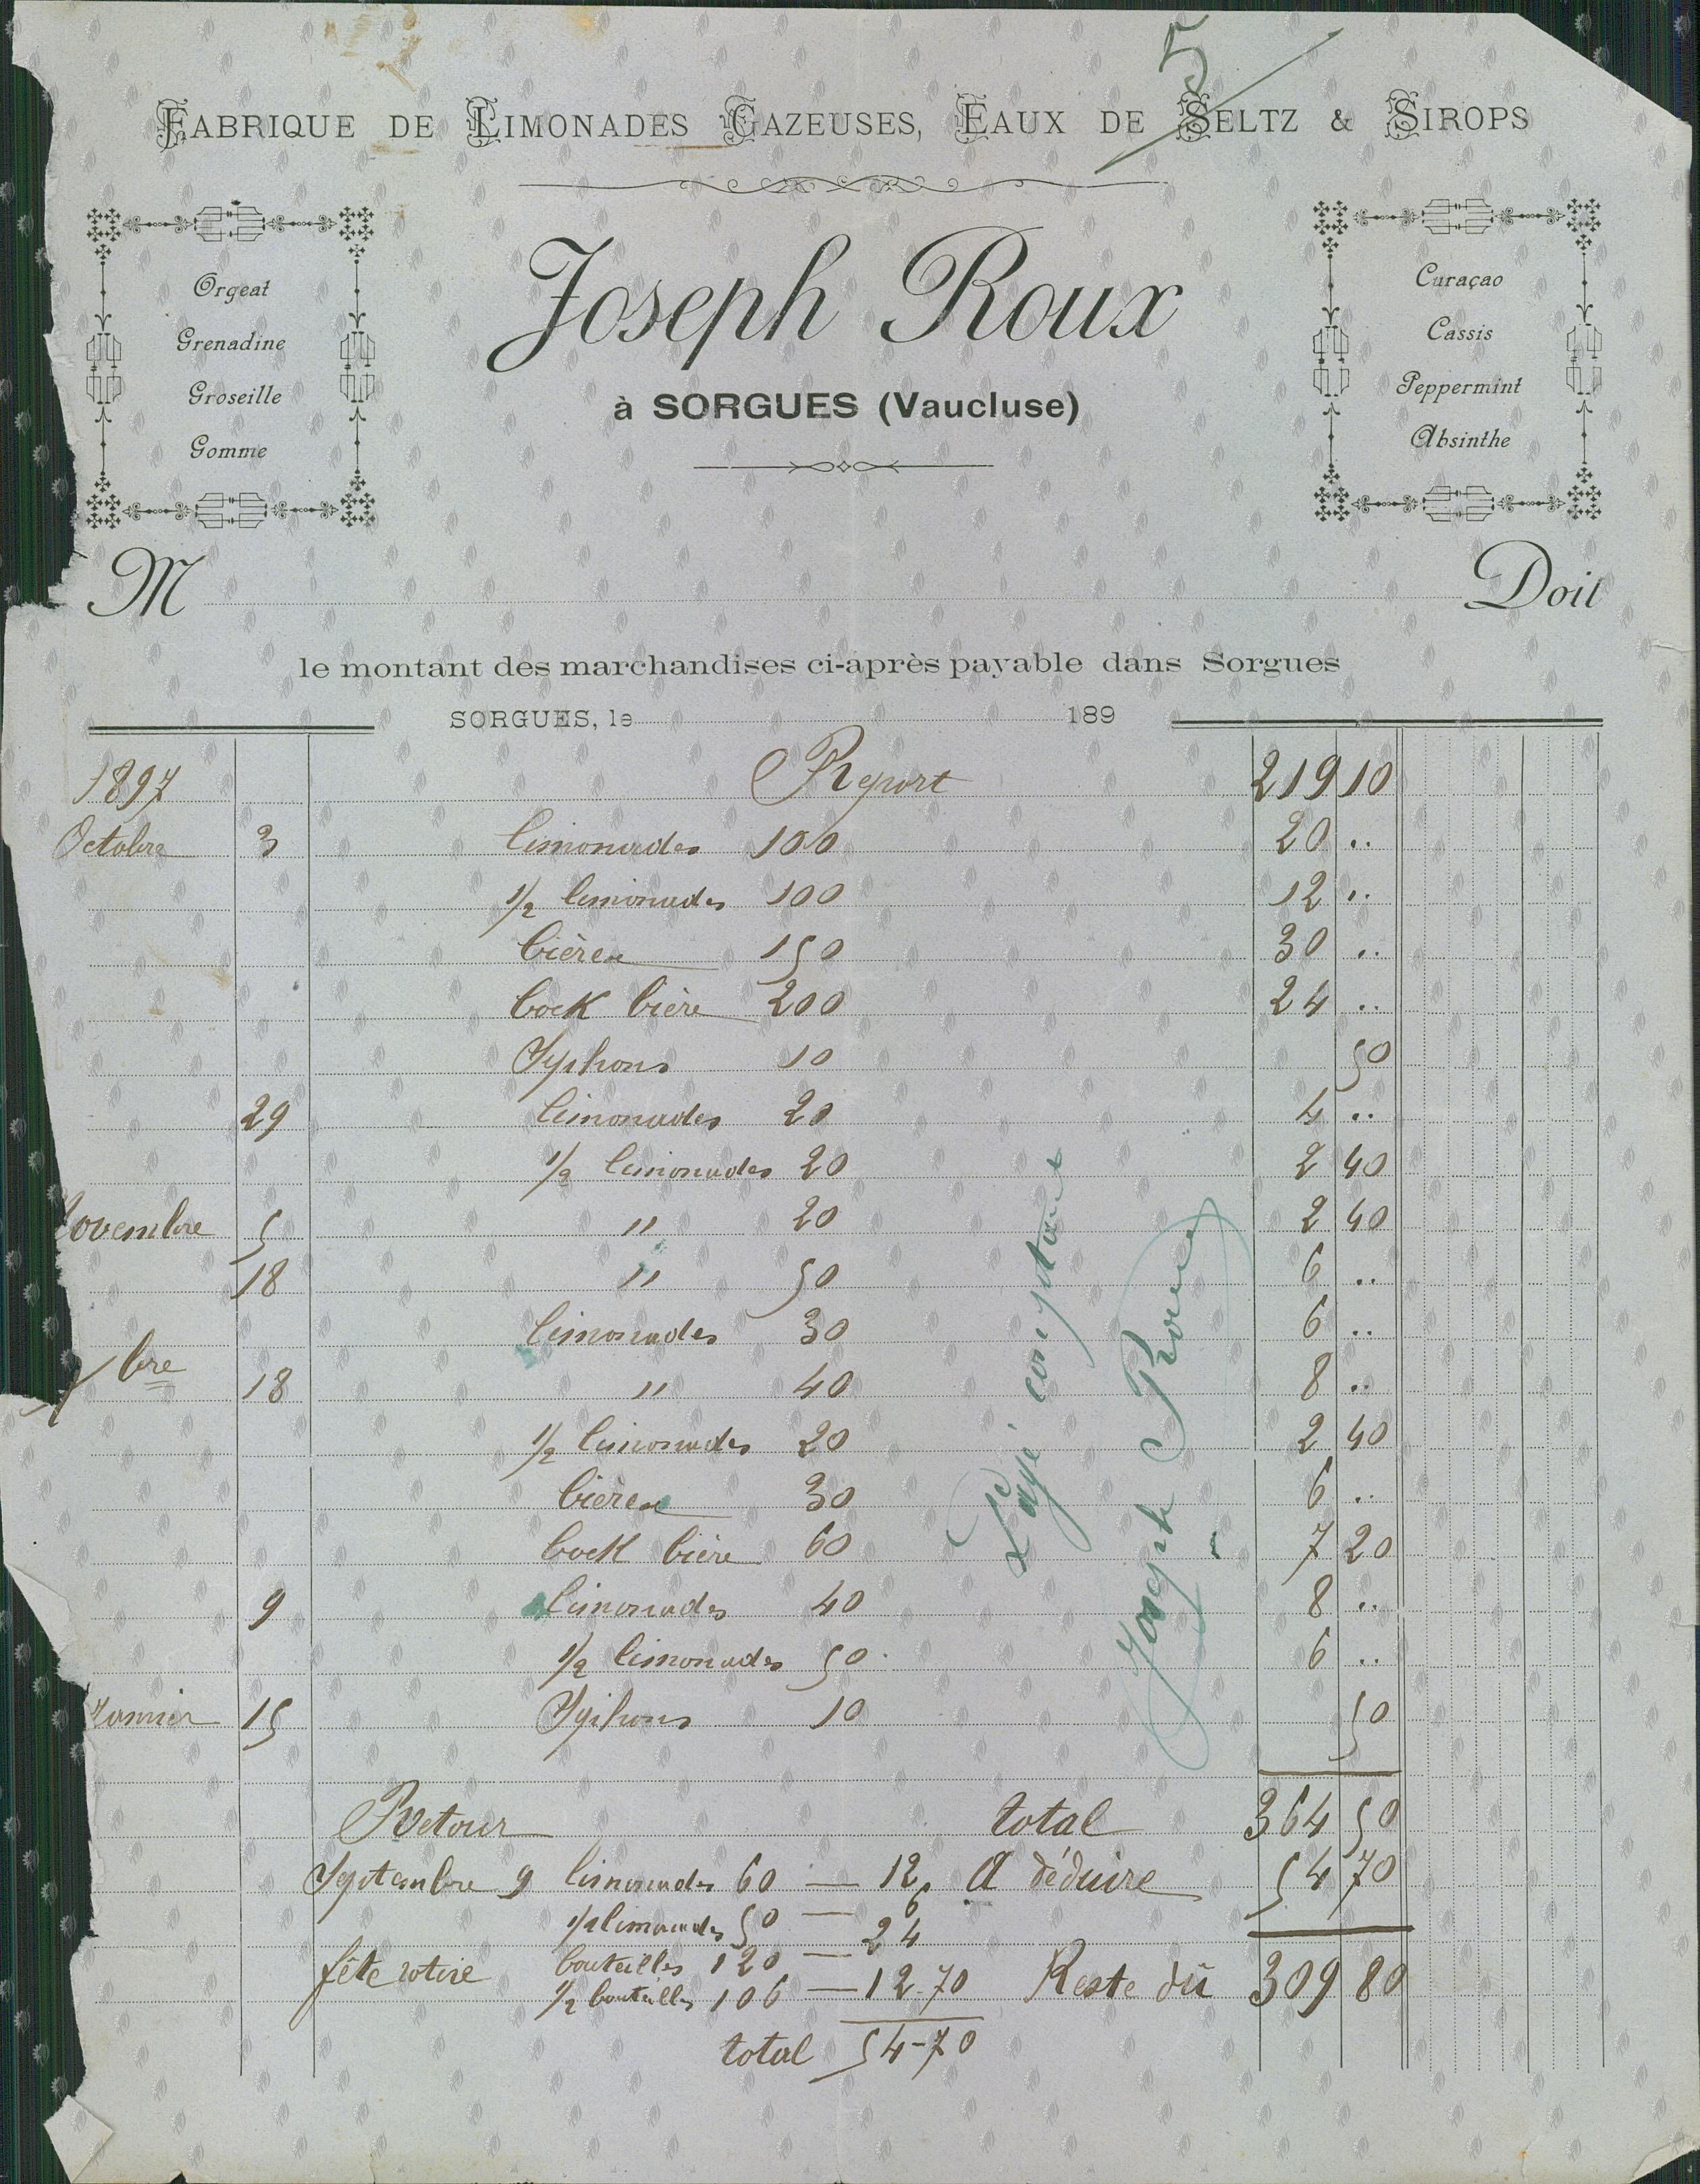 5
FABRIQUE DE LIMONADES GAZEUSES, EAUX DE SELTZ & SIROPS
Orgeat
Grenadine
Groseille
Gomme
Joseph Roux
à SORGUES (Vaucluse)
Curaçao
Cassis
Peppermint
Absinthe
M Doit
le montant des marchandises ci-après payable dans Sorgues
SORGUES, le 189
1897 Report 219 10
Octobre 3 limonades 100 20 ..
1/2 limonades 100 12 ..
bières 150 30 ..
bock bière 200 24 ..
Syphons 10 50
29 limonades 20 4 ..
1/2 limonades 20 2 40
ovembre 5 " 20 2 40
18 " 50 6 ..
limonades 30 6 ..
bre 18 " 40 8 ..
1/2 limonades 20 2 40
bières 30 6 ..
bock bière 60 7 20
9 limonades 40 8 ..
1/2 limonades 50 6 ..
Janvier 15 Syphons 10 50
Payé comptant
Joseph Roux
Retour total 364 50
Septembre 9 limonades 60 — 12 A déduire 54 70
1/2 limonades 50 — 6
fête votive bouteilles 120 — 24
1/2 bouteilles 106 — 12-70 Reste dû 309 80
total 54-70